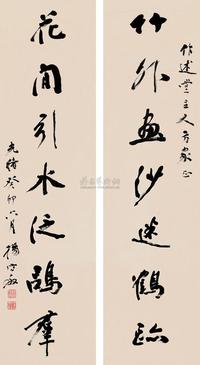 竹外画沙迷鹤迹
作述堂主人方家正
花间引水泛鹅群
光绪癸卯六月杨守敬